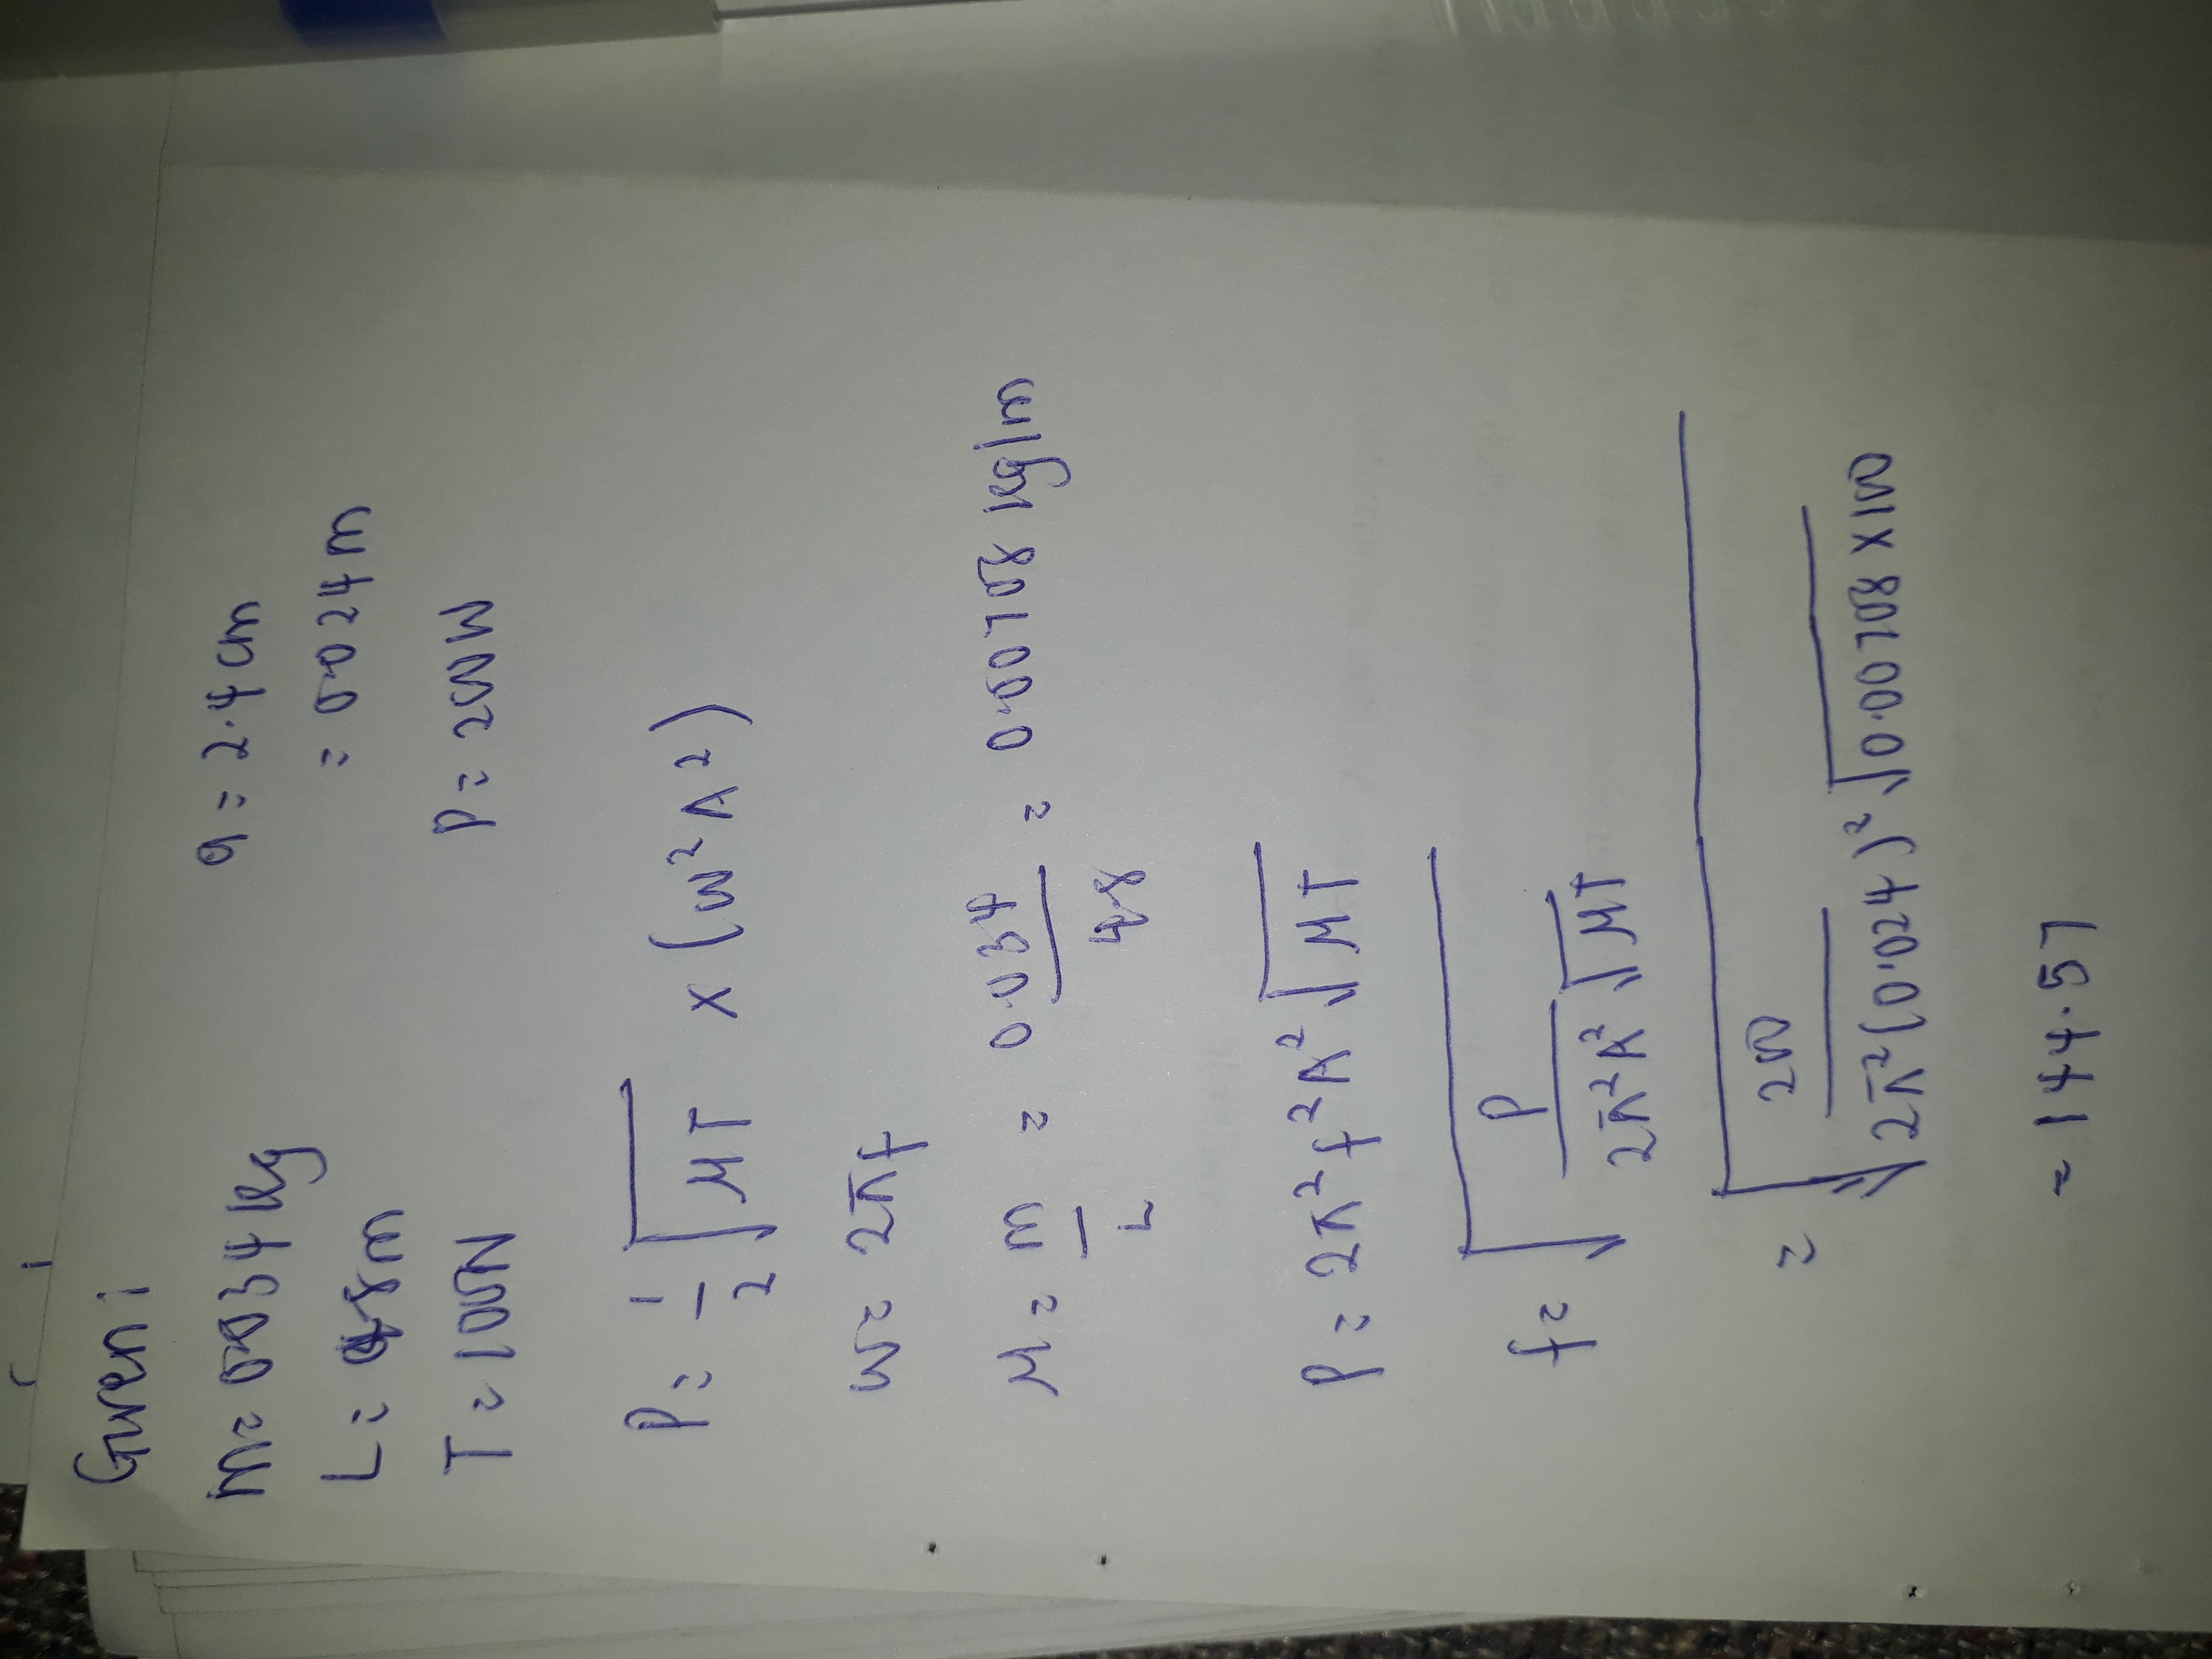 Given :
m = 0.034 kg a = 2.4 cm
L = 4.8m = 0.024 m
T = 100N P = 200W
P = 1/2 √μT x (w²A²)
w = 2πf
μ = m/L = 0.034/4.8 = 0.00708 kg/m
P = 2π²f²A² √μT
f = √(P/(2π²A² √μT))
= √(200/(2π²(0.024)² √0.00708 x 100))
= 144.57